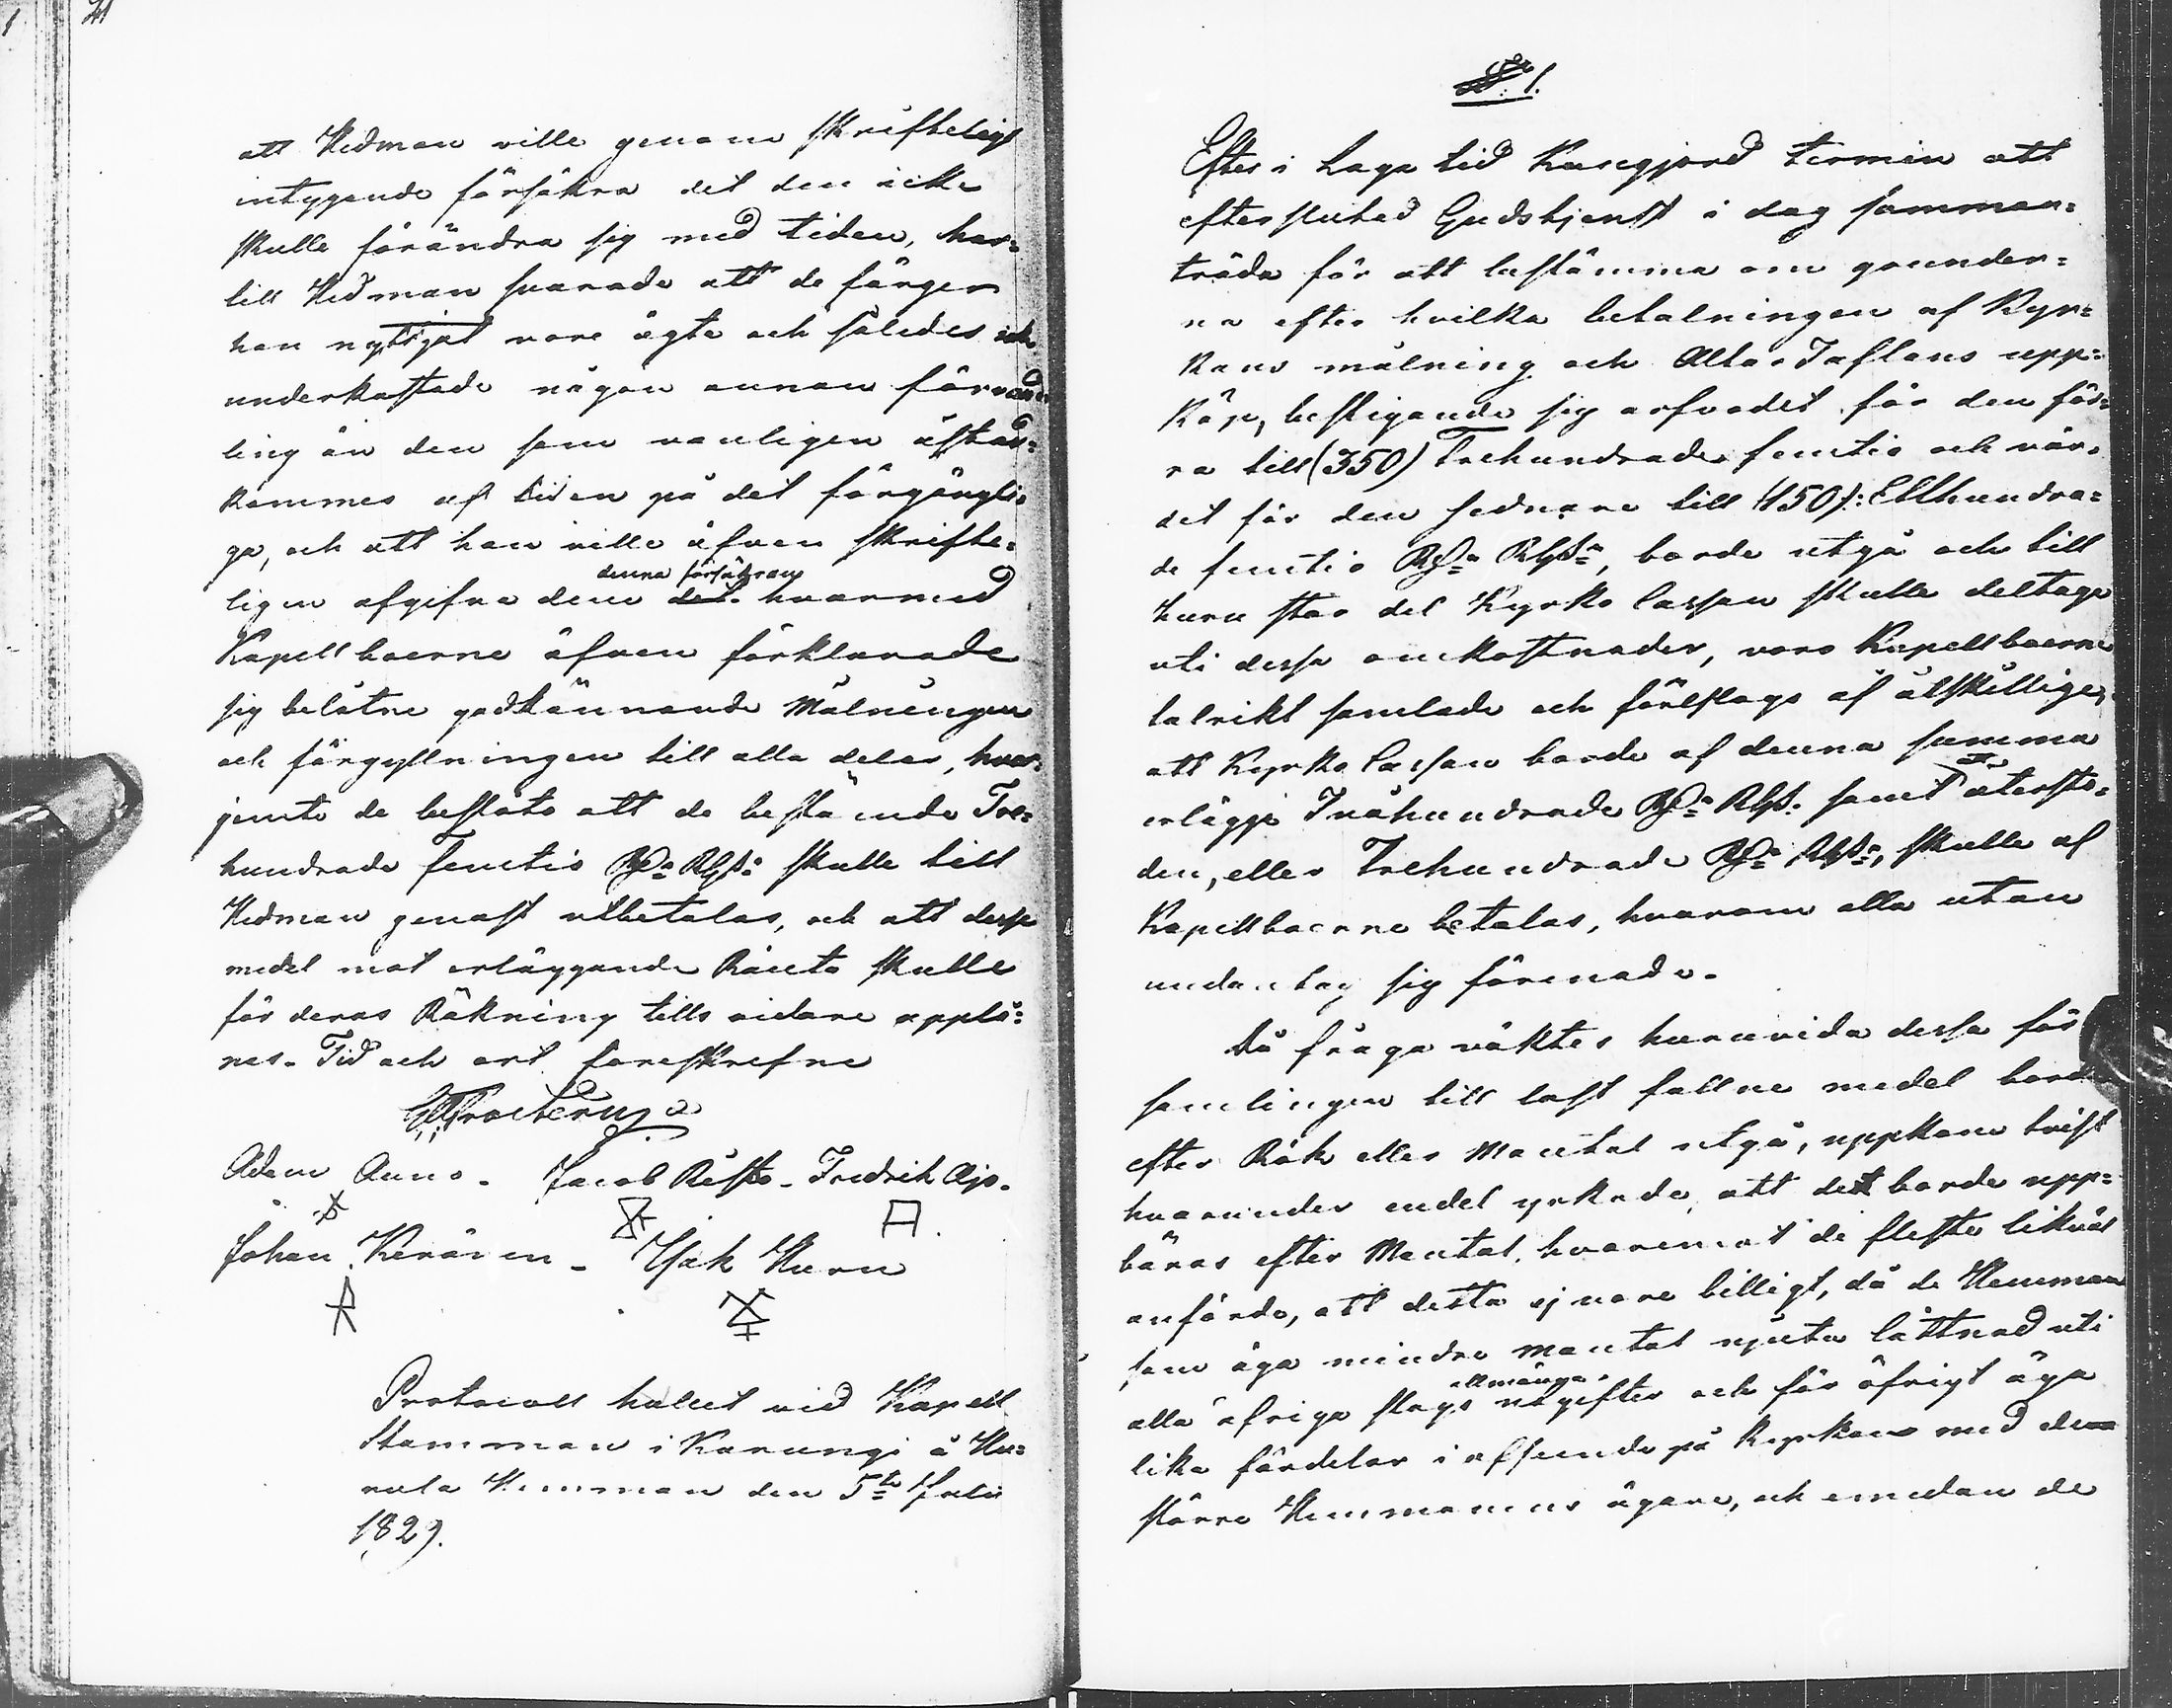 att Hedman ville genom skrifteligt
intygande försäkra det den icke
skulle förändra sig med tiden, har=
till Hedman svarade att de färger
han nyttjat vore ägta och således icke
underkastade någon annan förvand
ling än den som vanligen åstad=
kommes af tiden på det förgängli=
ga, och att han ville äfven skrifte=
denna försäkran
ligen afgifva dem hvarmed
Kapellboerne äfven förklarade
sig belåtne godkännande Målningen
och förgyllningen till alla delar, hvar=
jemte de beslöto att de bestämde Tre=
hundrade femtio Rdr Rgs. skulle till
Hedman genast utbetalas, och att dessa
medel mot erläggande Ränta skulle
för deras Räkning tills vidare upplå=
nas. Tid och ort föreskrefne
Adam Auno. Jacob Risto. Fredrik Ajo.
Johan Keränen. Isak Huru
Protocoll hållet vid Kapell
Stamman i Karungi å Hu=
rula Hemman den 5te Julii
1829.
§. 1.
Efter i Laga tid Kungjord termin att
efter slutad Gudstjenst i dag samman=
träda för att bestämma om grunder=
na efter hvilka betalningen af Kyr=
kans målning och Altar Taflans upp=
köp, bestigande sig arfvodet för den för=
ra till (350) Trehundrade femtio och vär=
det för den sednare till (150): Etthundra=
de femtio Rdr Rgs, borde utgå och till
huru stor del Kyrko Cassan skulle deltaga
uti dessa omkostnader, voro Kapellboerne
talrikt samlade och föreslogs af åtskillige,
att Kyrko Cassan borde af denna summa
erlägga Tvåhundrade Rdr Rgs. samt att återsto=
den, eller Trehundrade Rdr Rgs, skulle af
Kapellboerne betalas, hvarom alla utan
undantag sig förenade.
Då fråga väktes huruvida dessa för
samlingen till last fallne medel borde
efter Rök eller Mantal utgå, uppkom tvist
hvarunder endel yrkade, att det borde upp=
bäras efter Mantal, hvaremot de fleste likväl
anförde, att detta ej vore billigt, då de Hemman
som äga mindre mantal njuta lättnad uti
allmänna
alla öfriga slags utgifter och för öfrigt äga
lika fördelar i afseende på Kyrkan med den
större Hemmanens ägare, och emedan de